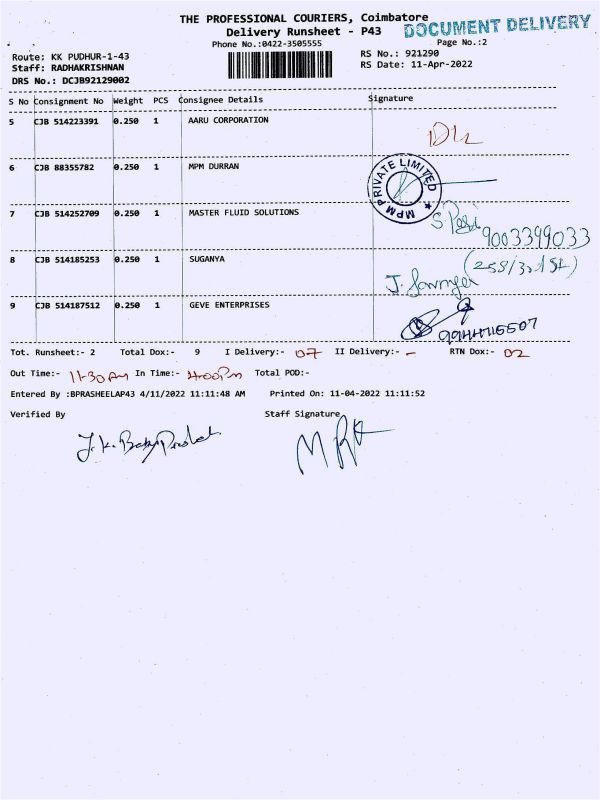 THE PROFESSIONAL COURIERS, Coimbatore
DOCUMENT DELIVERY
Delivery Runsheet - P43
Phone No.:0422-3505555
Page No.:2
Route: KK PUDHUR-1-43
RS No.: 921290
Staff: RADHAKRISHNAN
RS Date: 11-Apr-2022
DRS No.: DCJB92129002
S No Consignment No Weight PCS Consignee Details Signature
5 CJB 514223391 0.250 1 AARU CORPORATION
6 CJB 88355782 0.250 1 MPM DURRAN
MPM PRIVATE LIMITED ★
7 CJB 514252709 0.250 1 MASTER FLUID SOLUTIONS
9003399033
8 CJB 514185253 0.250 1 SUGANYA
9 CJB 514187512 0.250 1 GEVE ENTERPRISES
Tot. Runsheet:- 2 Total Dox:- 9 I Delivery:- 07 II Delivery:- - RTN Dox:- 02
Out Time:- 11-30 AM In Time:- 4:00 Pm Total POD:-
Entered By :BPRASHEELAP43 4/11/2022 11:11:48 AM Printed On: 11-04-2022 11:11:52
Verified By Staff Signature